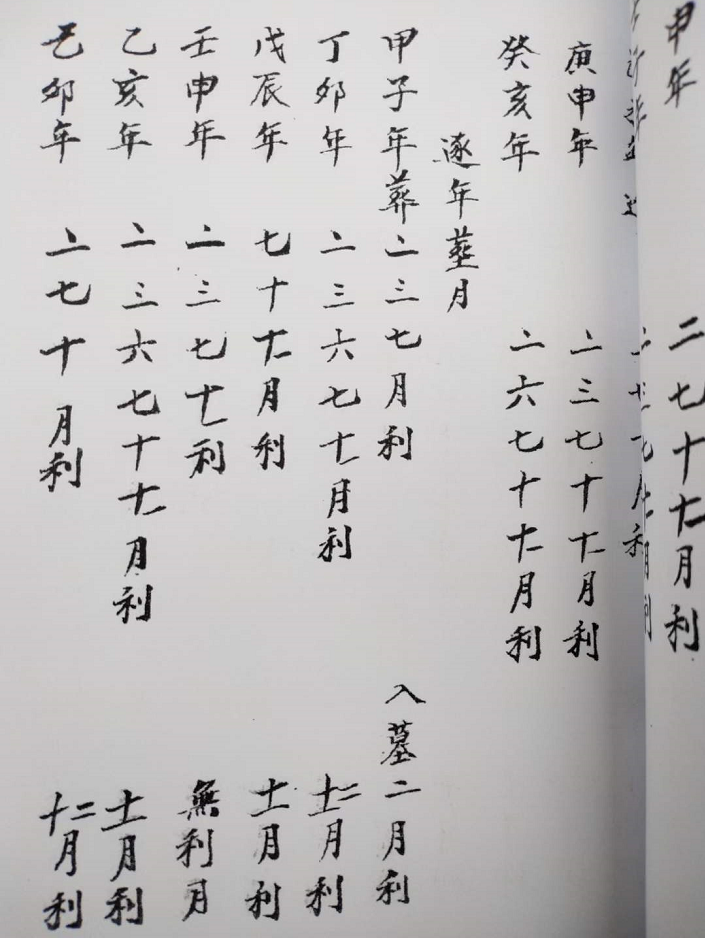 申年 二七十十二月利
庚申年 二三七十十二月利
癸亥年 二六七十十二月利
逐年葬月
甲子年葬二三七月利 入墓二月利
丁卯年 二三六七十一月利 十二月利
戊辰年 七十十二月利 十一月利
壬申年 二三七十一利 無利月
乙亥年 二三六七十十一月利 十一月利
己卯年 二七十月利 十二月利